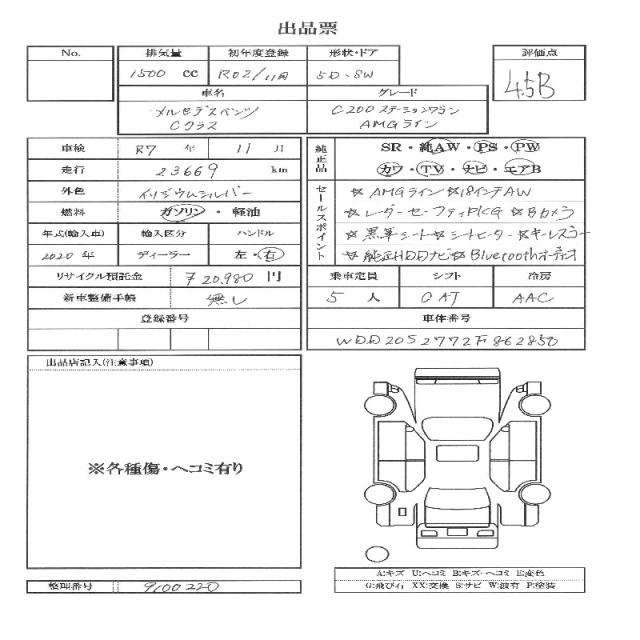 出品票
No. 排気量 初年度登録 形状・ドア 評価点
1500 cc R02/11月 5D・SW 4.5B
車名 グレード
メルセデスベンツ C200ステーションワゴン
Cクラス AMGライン
車検 R7 年 11 月
走行 23669 km
外色 イリジウムシルバー
燃料 ガソリン・軽油
年式(輸入車) 輸入区分 ハンドル
2020年 ディーラー 左・右
リサイクル預託金 ¥20,980 円
新車整備手帳 無し
登録番号
純正品 SR・純AW・PS・PW
カワ・TV・ナビ・エアB
セールスポイント ☆AMGライン☆18インチAW
☆レーダーセーフティPKG☆Bカメラ
☆黒革シート☆シートヒーター☆キーレスゴー
☆純正HDDナビ☆Bluetoothオーディオ
乗車定員 シフト 冷房
5 人 CAT AAC
車体番号
WDD2052772F862850
出品店記入(注意事項)
※各種傷・ヘコミ有り
整理番号 9100220
A:キズ U:ヘコミ B:キズ・ヘコミ E:変色
G:飛び石 XX:交換 S:サビ W:波有 P:塗装